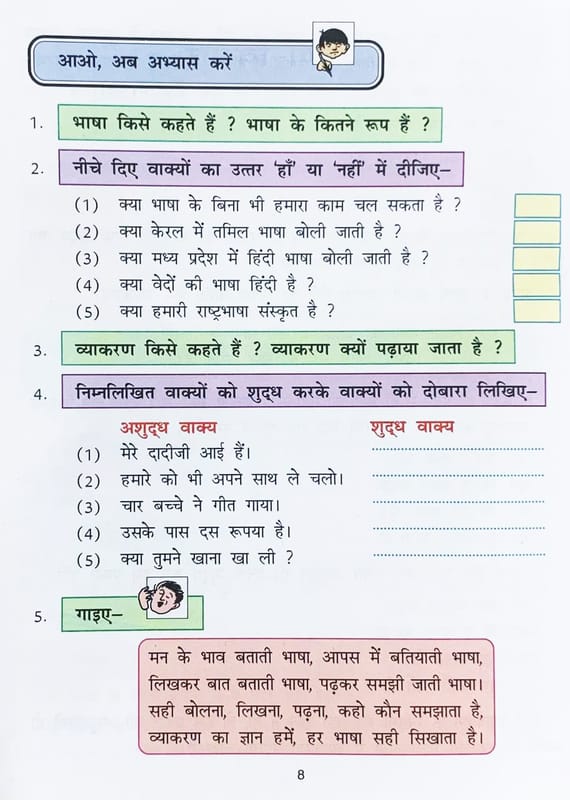 आओ, अब अभ्यास करें
1. भाषा किसे कहते हैं ? भाषा के कितने रूप हैं ?
2. नीचे दिए वाक्यों का उत्तर ‘हाँ’ या ‘नहीं’ में दीजिए–
(1) क्या भाषा के बिना भी हमारा काम चल सकता है ?
(2) क्या केरल में तमिल भाषा बोली जाती है ?
(3) क्या मध्य प्रदेश में हिंदी भाषा बोली जाती है ?
(4) क्या वेदों की भाषा हिंदी है ?
(5) क्या हमारी राष्ट्रभाषा संस्कृत है ?
3. व्याकरण किसे कहते हैं ? व्याकरण क्यों पढ़ाया जाता है ?
4. निम्नलिखित वाक्यों को शुद्ध करके वाक्यों को दोबारा लिखिए–
अशुद्ध वाक्य शुद्ध वाक्य
(1) मेरे दादीजी आई हैं।
(2) हमारे को भी अपने साथ ले चलो।
(3) चार बच्चे ने गीत गाया।
(4) उसके पास दस रूपया है।
(5) क्या तुमने खाना खा ली ?
5. गाइए–
मन के भाव बताती भाषा, आपस में बतियाती भाषा,
लिखकर बात बताती भाषा, पढ़कर समझी जाती भाषा।
सही बोलना, लिखना, पढ़ना, कहो कौन समझाता है,
व्याकरण का ज्ञान हमें, हर भाषा सही सिखाता है।
8